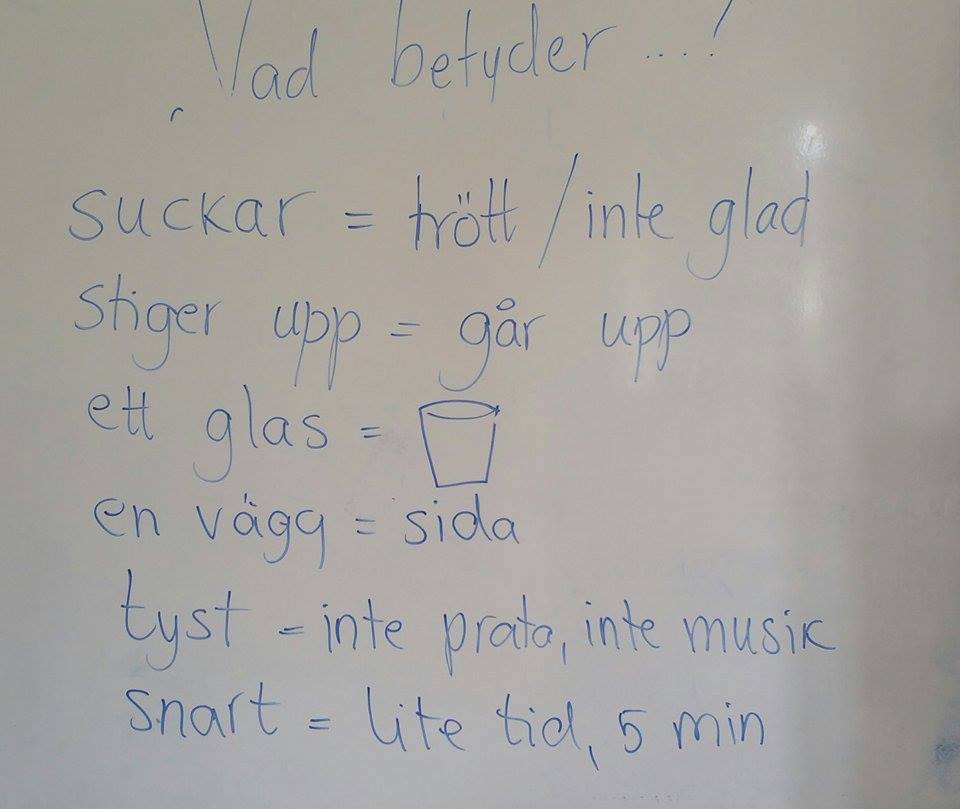 Vad betyder ...!
suckar = trött / inte glad
Stiger upp = går upp
ett glas =
en vägg = sida
tyst = inte prata, inte musik
snart = lite tid, 5 min